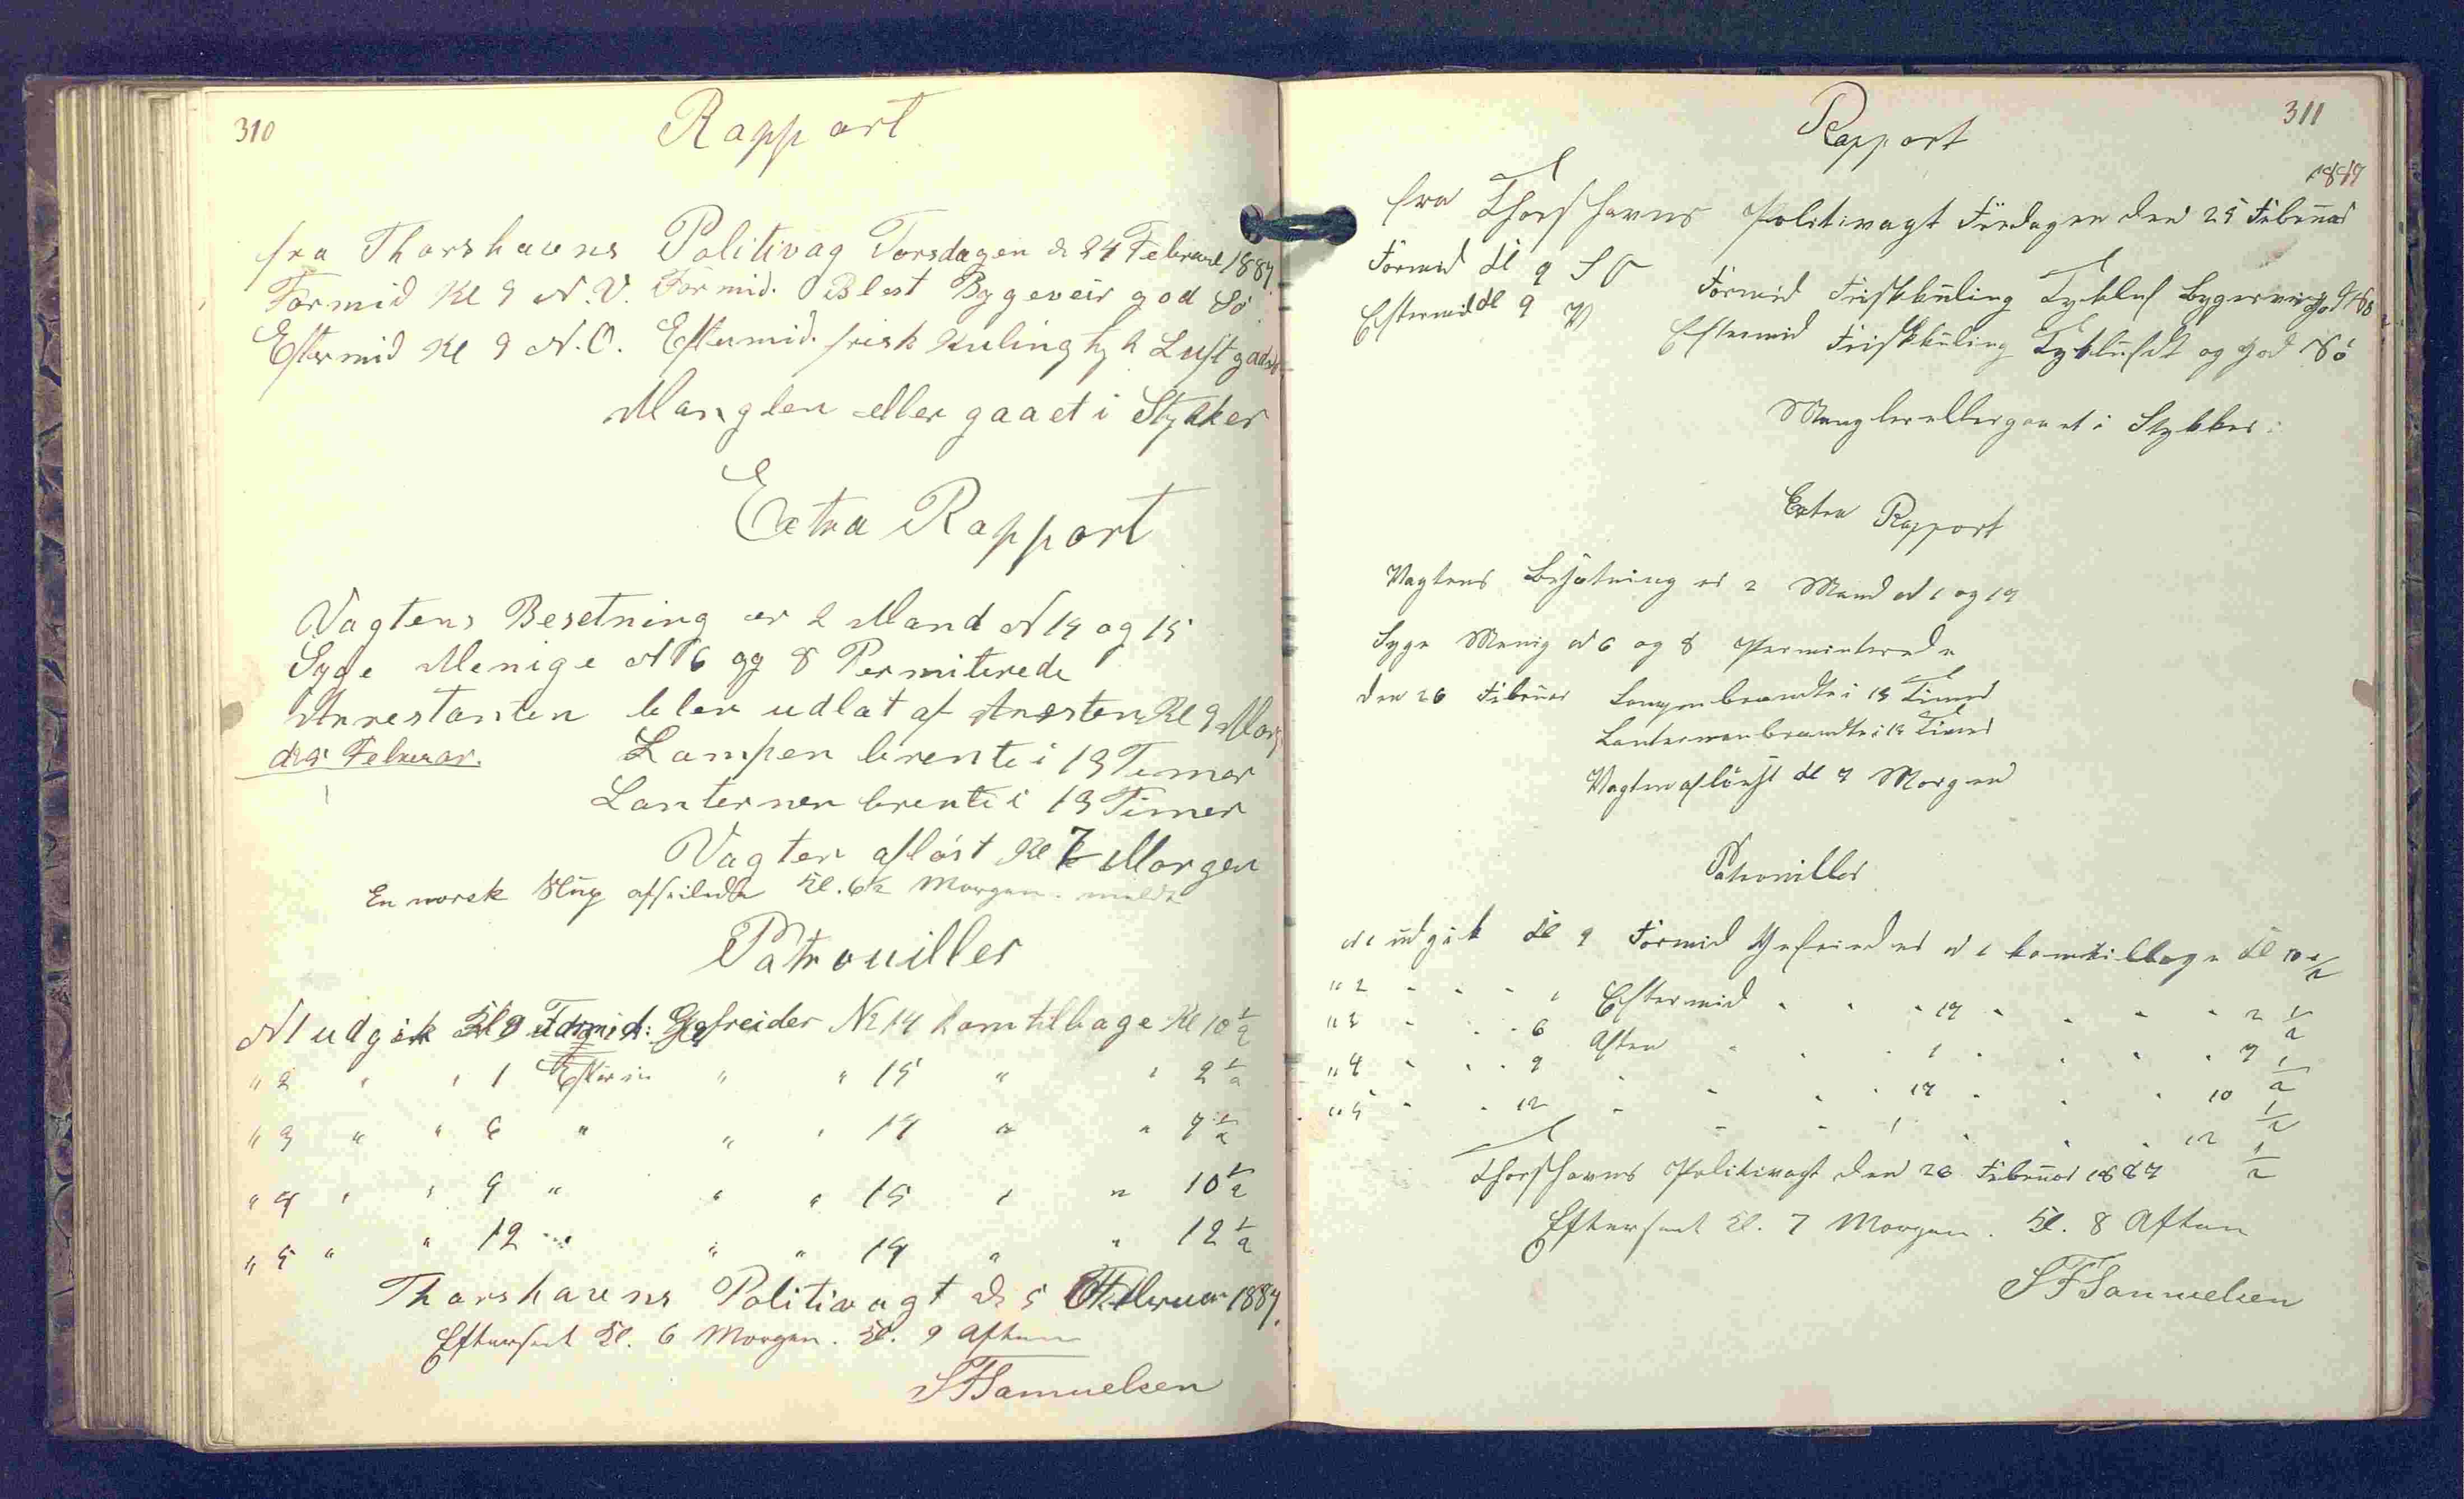 310
Rapport
fra Thorshavns Politivag Torsdagen d 24 Februar 1887.
Formid Kl 9 N.V. Formid. Blest Bygeveir god Sö
Eftermid Kl 9 N.O. Eftermid. frisk Kuling tyk Luft god Sö
Manglen eller gaaet i Stykker
Extra Rapport
Vagtens Besetning er 2 Mand N 14 og 15
Syge Menige N 6 og 8 Permiterede
Arrestanten blev udlat af Aresten Kl 9 Morg
d 25 Februar. Lampen brente i 13 Timer
Lanternen brente i 13 Timer
Vagten aflöst Kl 7 Morgen
En norsk Slup afseilede Kl. 6½ Morgen. meldt
Patrouiller
N 1 udgik Kl 9 Formid: Gefreider No 14 kom tilbage Kl 10 ½
" 2 " " 1 Efterm " " 15 " " 2 ½
" 3 " " 6 " " " 14 " " 7 ½
" 4 " " 9 " " " 15 " " 10 ½
" 5 " " 12 " " " 14 " " 12 ½
Thorshavns Politivagt d 5 Februar 1887.
Efterseet Kl. 6 Morgen. Kl. 9 Aften
SFSamuelsen
311
Rapport
1887
fra Thorshavns Politivagt Fredagen den 25 Februar
Formid Kl 9 S O Formid Friskkuling Tykluft Bygerveir god Sö
Eftermid Kl 9 V Eftermid Friskkuling Tykluft og god Sö
Mangler eller gaaet i Stykker
Extra Rapport
Vagtens Besætning er 2 Mand N 1 og 17
Syge Menig N 6 og 8 Perminterede
den 26 Februar Lampen brændte i 13 Timer
Lanternen brændte i 12 Timer
Vagten aflöst Kl 7 Morgen
Patrouiller
N 1 udgik Kl 9 Formid Gefreider N 1 kom tilbage Kl 10 ½
" 2 " " 1 Eftermid " " 17 " " 2 ½
" 3 " " 6 Aften " " 1 " " 7 ½
" 4 " " 9 " " " 17 " " 10 ½
" 5 " " 12 " " " 1 " " 12 ½
Thorshavns Politivagt den 26 Februar 1887
Efterseet Kl. 7 Morgen. Kl. 8 Aften
SFSamuelsen